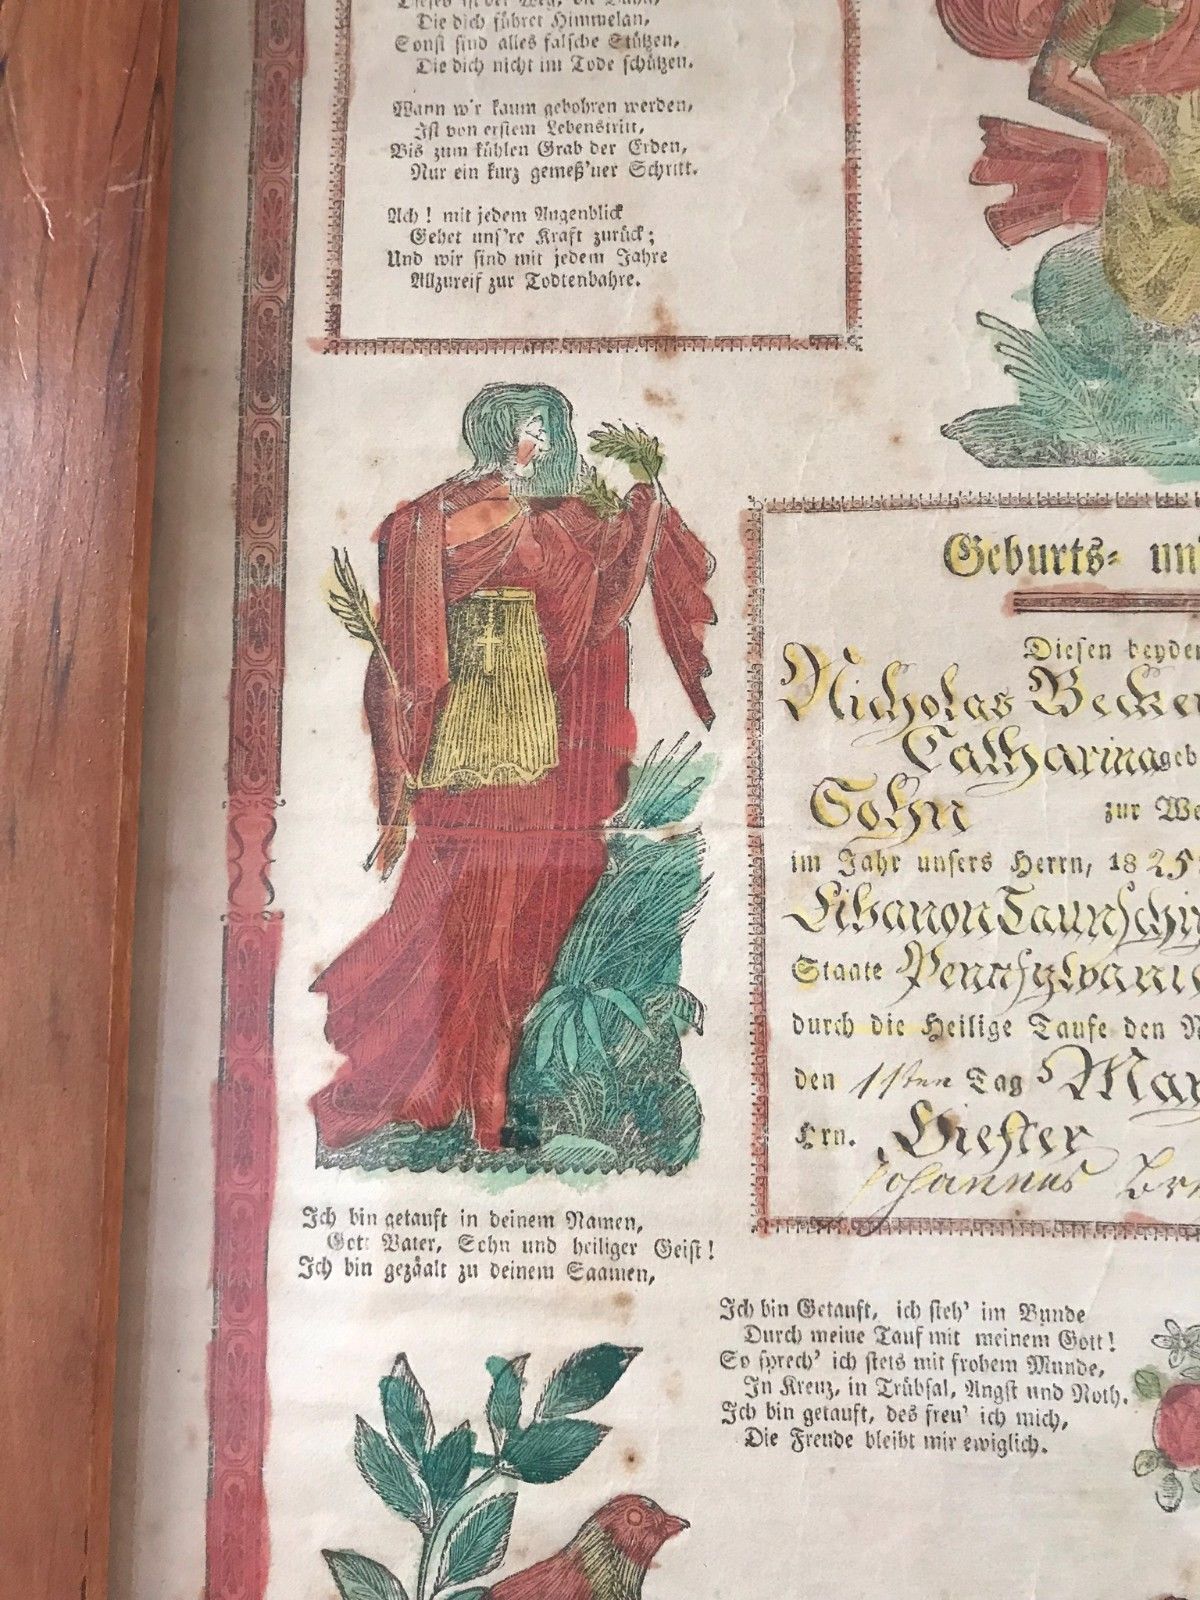 Dieses ist der Weg, die Bahn,
Die dich führet Himmelan,
Sonst sind alles falsche Stützen,
Die dich nicht im Tode schützen.
Wann w'r kaum gebohren werden,
Ist von erstem Lebenstritt,
Bis zum kühlen Grab der Erden,
Nur ein kurz gemeß'ner Schritt.
Ach! mit jedem Augenblick
Gehet uns're Kraft zurück;
Und wir sind mit jedem Jahre
Allzureif zur Todtenbahre.
Geburts- un
Diesen beyden
Nicholas Becker
Catharina geb
Sohn zur We
im Jahr unsers Herrn, 1825
Libanon Taunschi
Staate Pennsylvani
durch die Heilige Taufe den N
den 1sten Tag May
Hrn. Hiester
Johannes
Ich bin getauft in deinem Namen,
Gott Vater, Sohn und heiliger Geist!
Ich bin gezäalt zu deinem Saamen,
Ich bin Getauft, ich steh' im Bunde
Durch meine Tauf mit meinem Gott!
So sprech' ich stets mit frobem Munde,
In Kreuz, in Trübsal, Angst und Noth.
Ich bin getauft, des freu' ich mich,
Die Freude bleibt mir ewiglich.